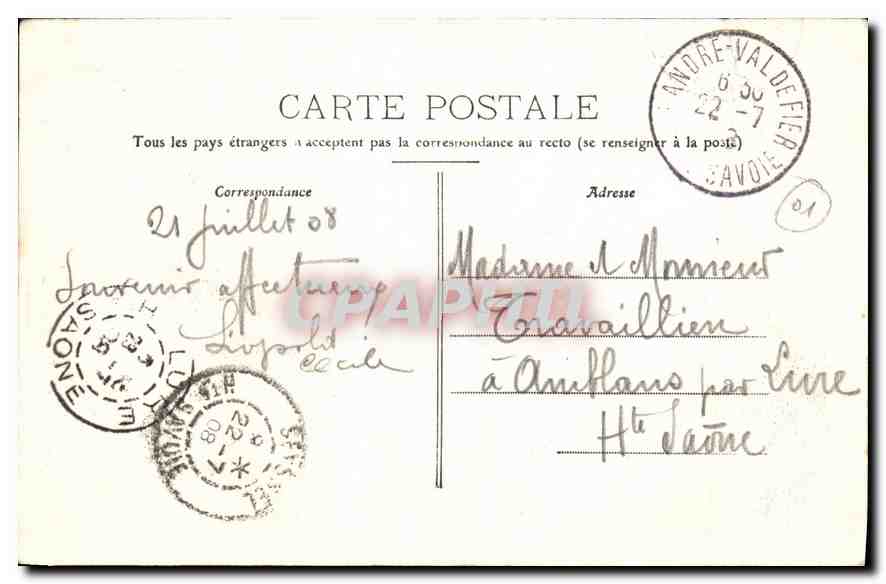 CARTE POSTALE
Tous les pays étrangers n'acceptent pas la correspondance au recto (se renseigner à la poste)
Correspondance
21 juillet 08
Souvenir affectueux
Léopold
Cécile
Adresse
Madame et Monsieur
Travaillien
à Amblans par Lure
Hte Saône
ANDRE-VAL DE FIER
6 30
22 -7
SAVOIE
01
LURE
HTE SAONE
SEYSSEL
HTE SAVOIE
22 -7
08
CPAPHIL